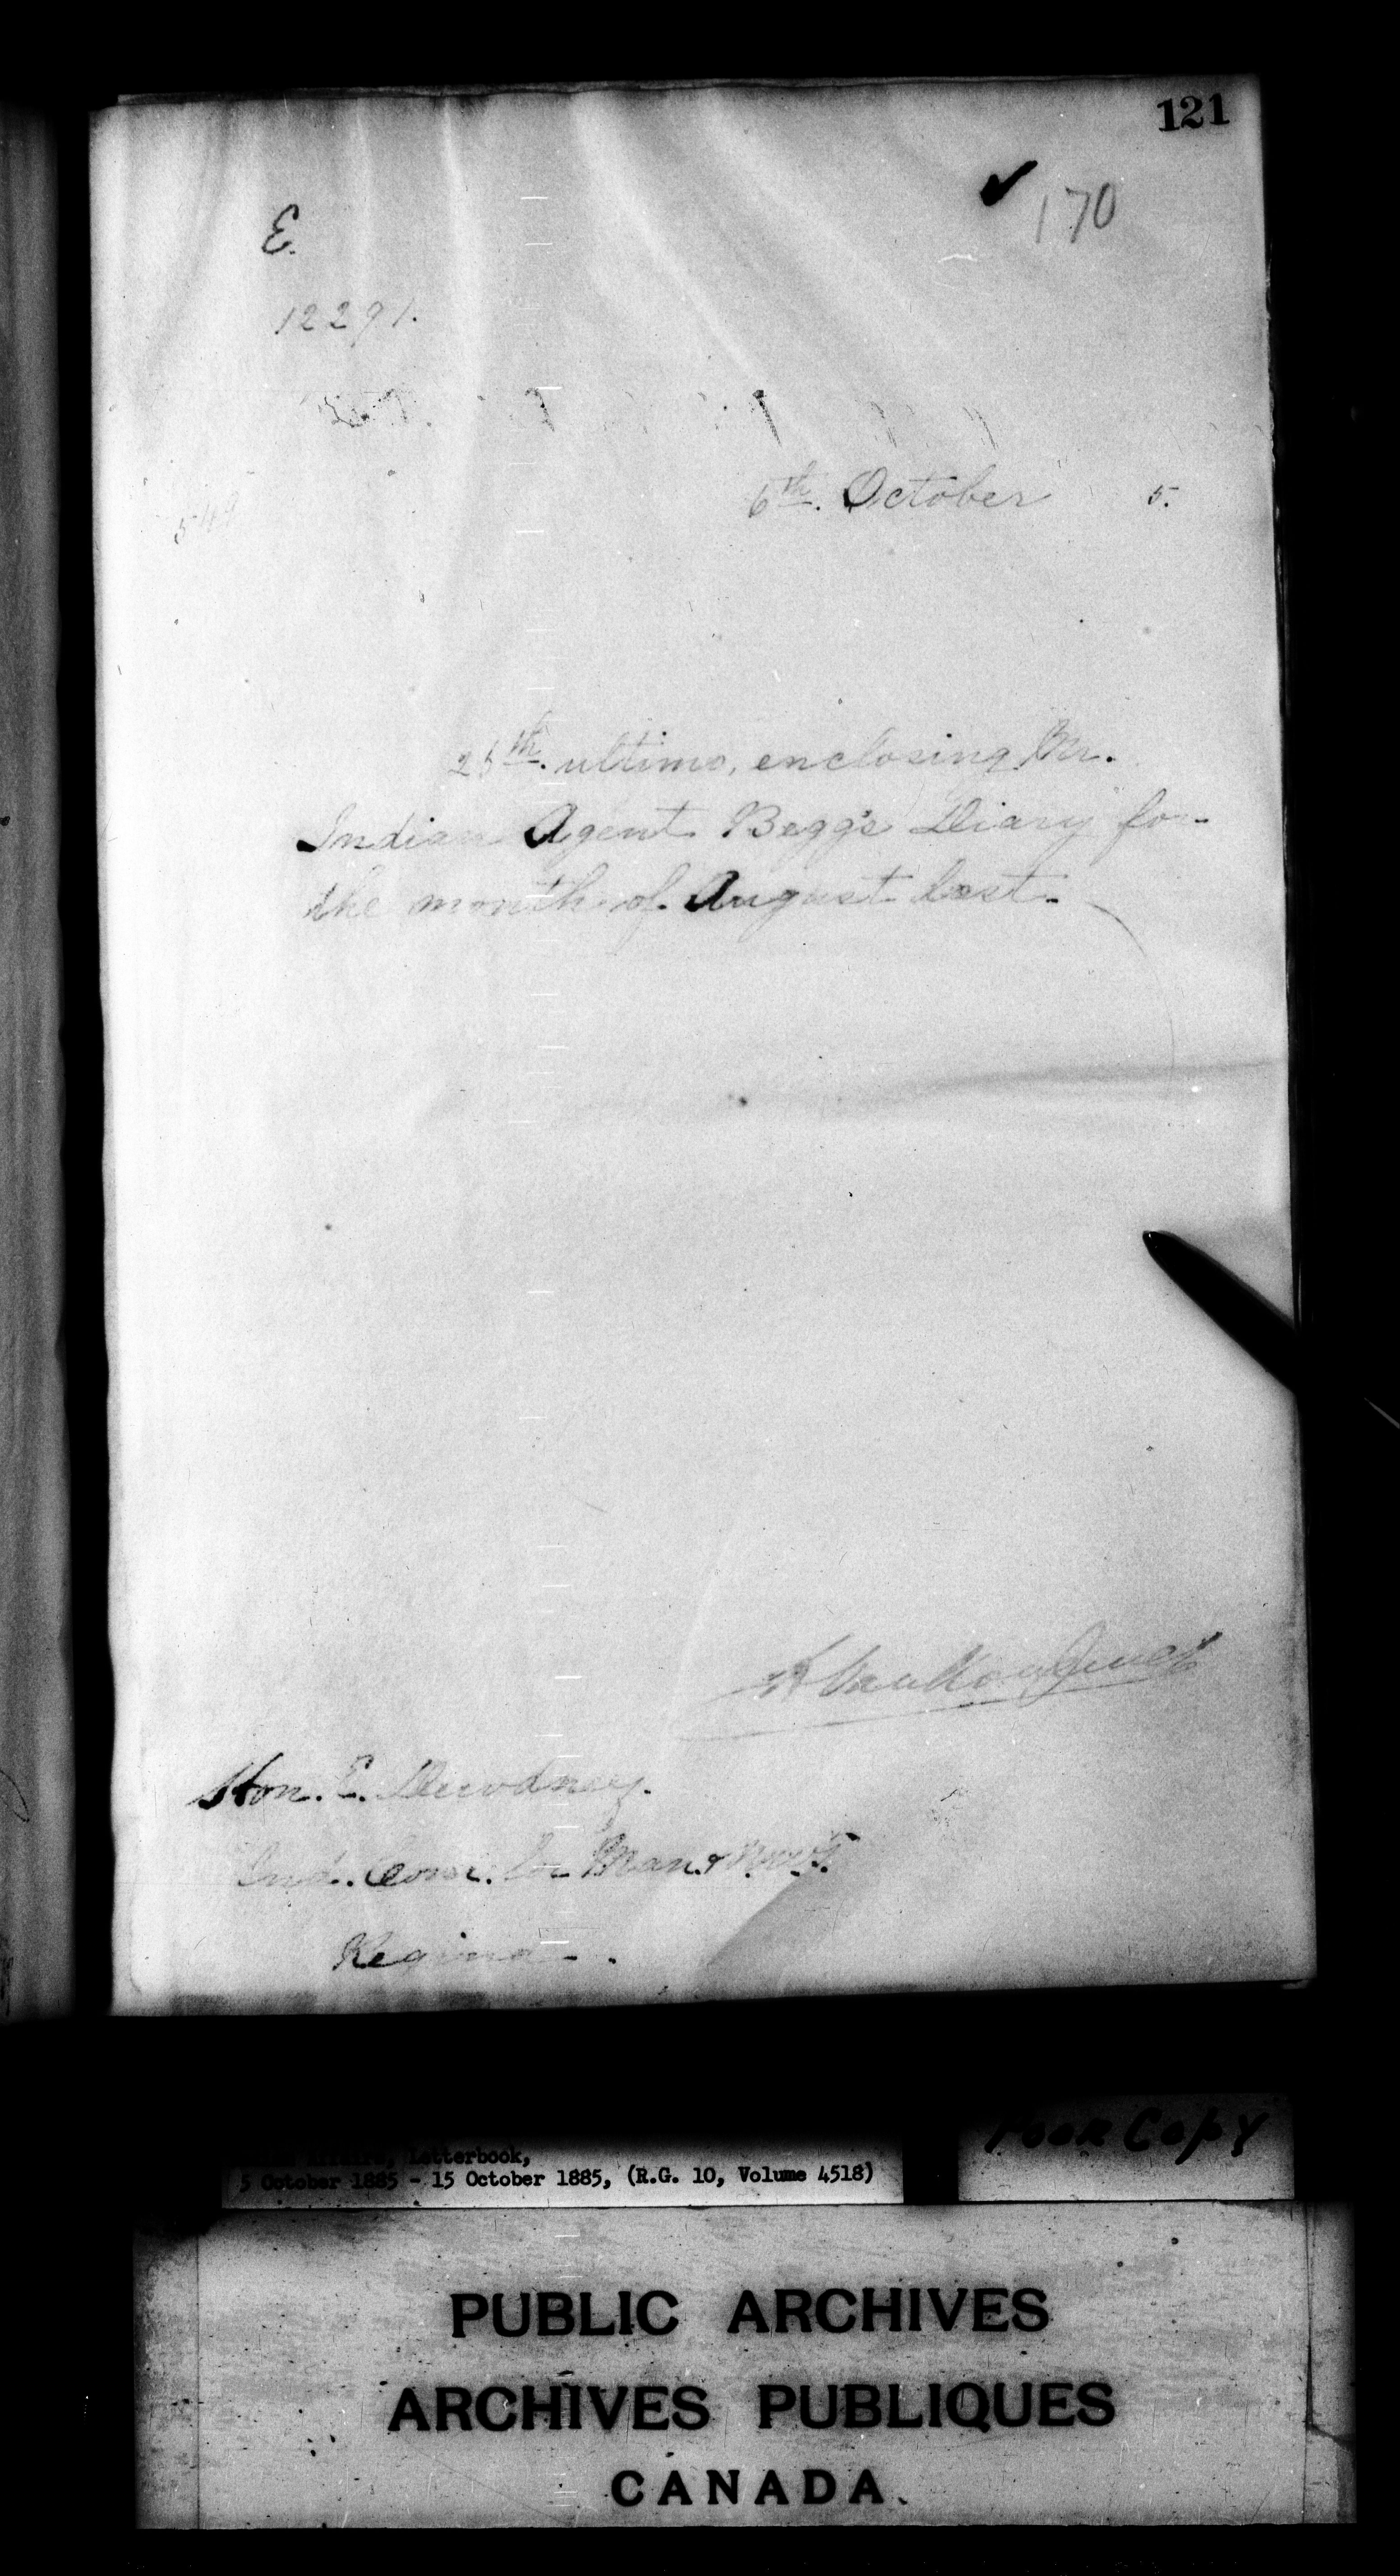 121
170
E.
12291.
6th. October 5.
ultimo, enclosing Mr.
Indian Agent Begg's Diary for
the month of August last.
L. VanKoughnet
Hon. E. Dewdney.
Ind. Comr. for Man. & N.W.T.
Regina.
Poor Copy
Affairs, Letterbook,
5 October 1885 - 15 October 1885, (R.G. 10, Volume 4518)
PUBLIC ARCHIVES
ARCHIVES PUBLIQUES
CANADA